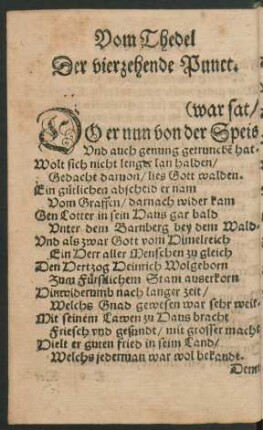 Vom Thedel
Der vierzehende Punct.
(war sat/
DO er nun von der Speis
Vnd auch genung getruncken hat.
Wolt sich nicht lenger lan halden/
Gedacht daruon/ lies Gott walden.
Ein gütlichen abscheid er nam
Vom Graffen/ darnach wider kam
Gen Lotter in sein Haus gar bald
Vnter dem Barnberg bey dem Wald.
Vnd als zwar Gott vom Himelreich
Ein Herr aller Menschen zu gleich
Den Hertzog Heinrich Wolgeborn
Zum Fürstlichem Stam auserkorn
Hinwiderumb nach langer zeit/
Welchs Gnad gewesen war sehr weit.
Mit seinem Lawen zu Haus bracht
Friesch vnd gesundt/ mit grosser macht
Hielt er guten fried in seim Land/
Welchs jederman war wol bekandt.
Dem